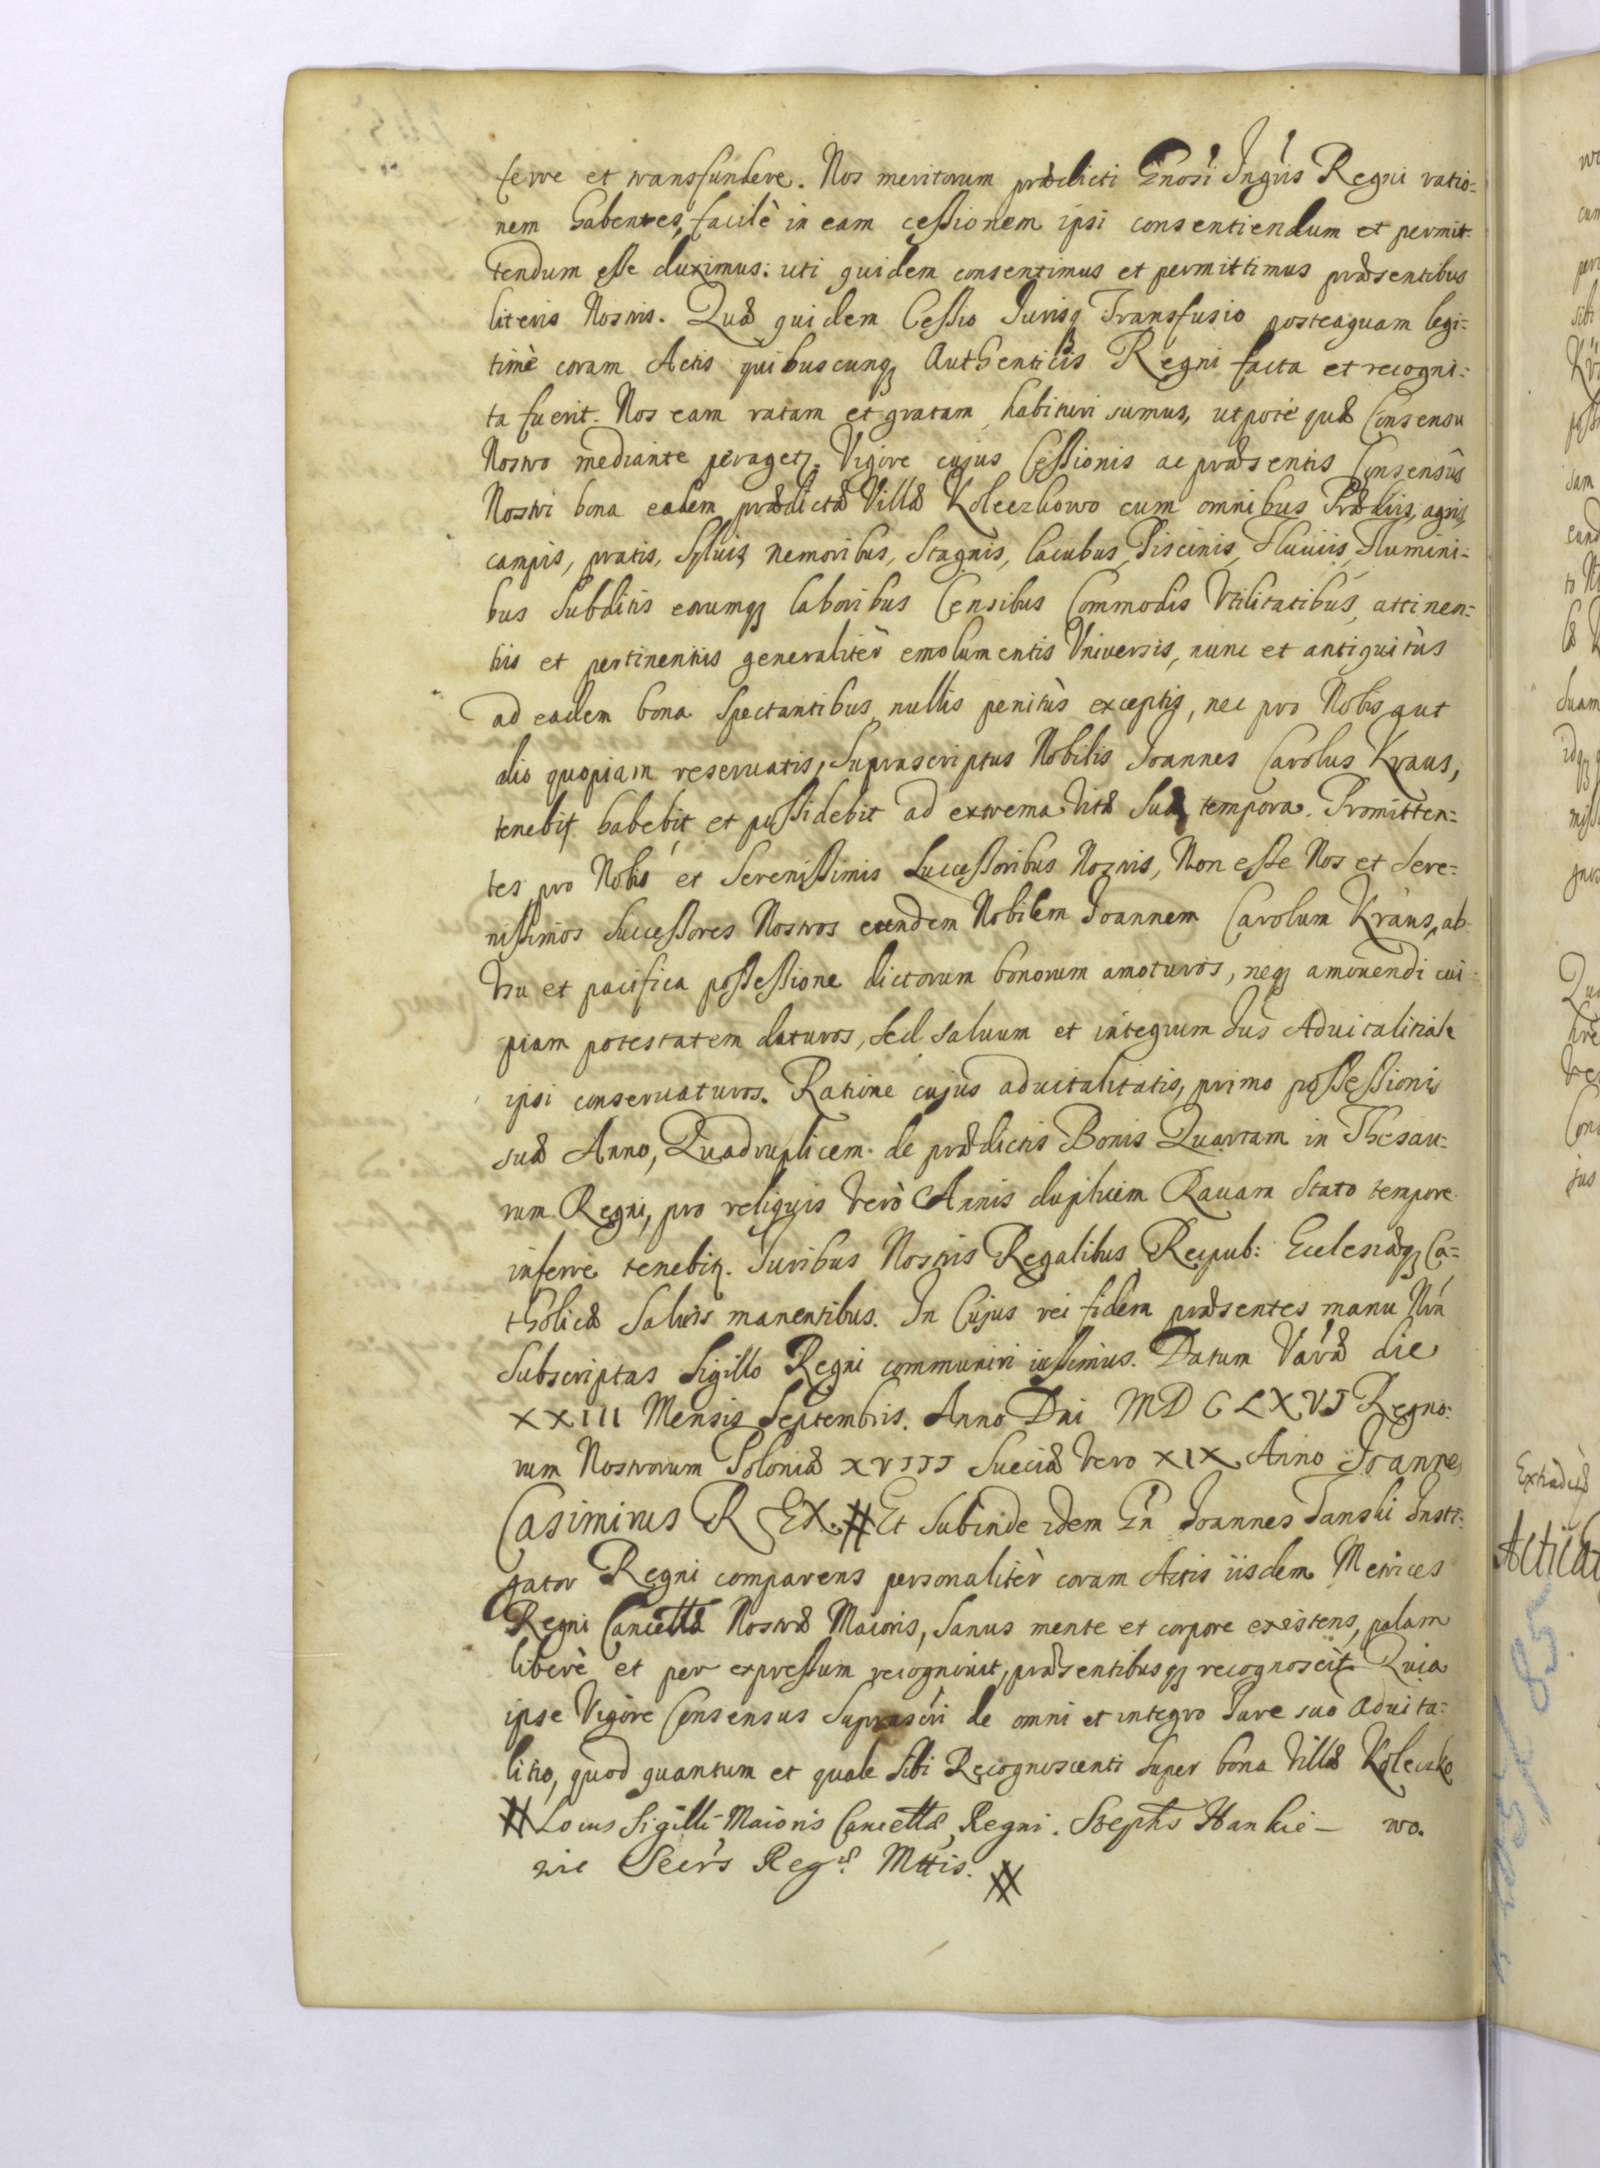 ferre et transfundere. Nos meritorum prædicti Gnosi Ingris Regni ratio=
nem habentes, facilè in eam cessionem ipsi consentiendum et permit-
tendum esse duximus: uti quidem consentimus et permittimus præsentibus
literis Nostris. Quæ quidem Cessio Jurisq Transfusio posteaquam legi=
timè coram Actis quibuscunq Authenticis Regni facta et recogni=
ta fuerit. Nos eam ratam et gratam habituri sumus, utpote quæ Consensu
Nostro mediante peraget. Vigore cujus Cessionis ac præsentis Consensûs
Nostri bona eadem prædictæ Villæ Koleczkowo cum omnibus Prædiis, agris,
campis, pratis, Sylvis, nemoribus, Stagnis, lacubus, Piscinis, Fluviis, Flumini=
bus Subditis eorumq laboribus Censibus Commodis Utilitatibus, attinen=
tiis et pertinentiis generalitèr emolumentis Universis, nunc et antiquitùs
ad eadem bona Spectantibus, nullis penitùs exceptis, nec pro Nobis aut
alio quopiam reservatis, Suprascriptus Nobilis Joannes Carolus Kraus,
tenebit habebit et possidebit ad extrema Vitæ Suæ tempora. Promitten=
tes pro Nobis et Serenissimis Successoribus Nostris, Non esse Nos et Sere=
nissimos Successores Nostros eundem Nobilem Joannem Carolum Kraus, ab
Usu et pacifica possessione dictorum bonorum amoturos, neq amovendi cui=
piam potestatem daturos, sed salvum et integrum Jus Advitalitiale
ipsi conservaturos. Ratione cujus advitalitatis, primo possessionis
suæ Anno, Quadruplicem de prædictis Bonis Quartam in Thesau=
rum Regni, pro reliquis Verò Annis duplicem Ravam Stato tempore
inferre tenebit. Juribus Nostris Regalibus Reipub: Ecclesiæq Ca=
tholicæ Salvis manentibus. In Cujus rei fidem præsentes manu Nrâ
Subscriptas Sigillo Regni communiri iussimus. Datum Varæ die
XXIII Mensis Septembris. Anno Dni MDCLXVI Regno=
rum Nostrorum Poloniæ XVIII Sueciæ Vero XIX Anno Joannes
Casimirus REX. # Et Subinde idem Gn Joannes Tanski Insti=
gator Regni comparens personalitèr coram Actis iisdem Metrices
Regni Cancellæ Nostræ Maioris, Sanus mente et corpore existens, palam
liberè et per expressum recognivit, præsentibusq recognoscit. Quia
ipse Vigore Consensus Suprascri de omni et integro Jure suo advita=
litio, quod quantum et quale Sibi Recognoscenti Super bona Villæ Koleczko
wo.
# Locus Sigilli Maioris Cancellæ Regni. Stephs Hankie-
wic Secrs Regæ Mttis. #
Extradit